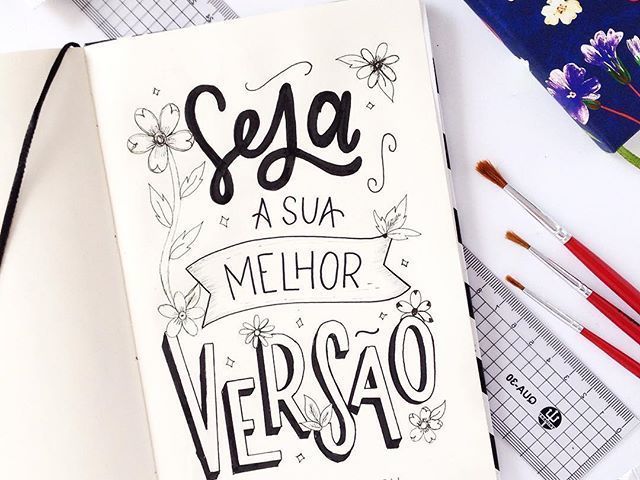 Seja
A SUA
MELHOR
VERSÃO